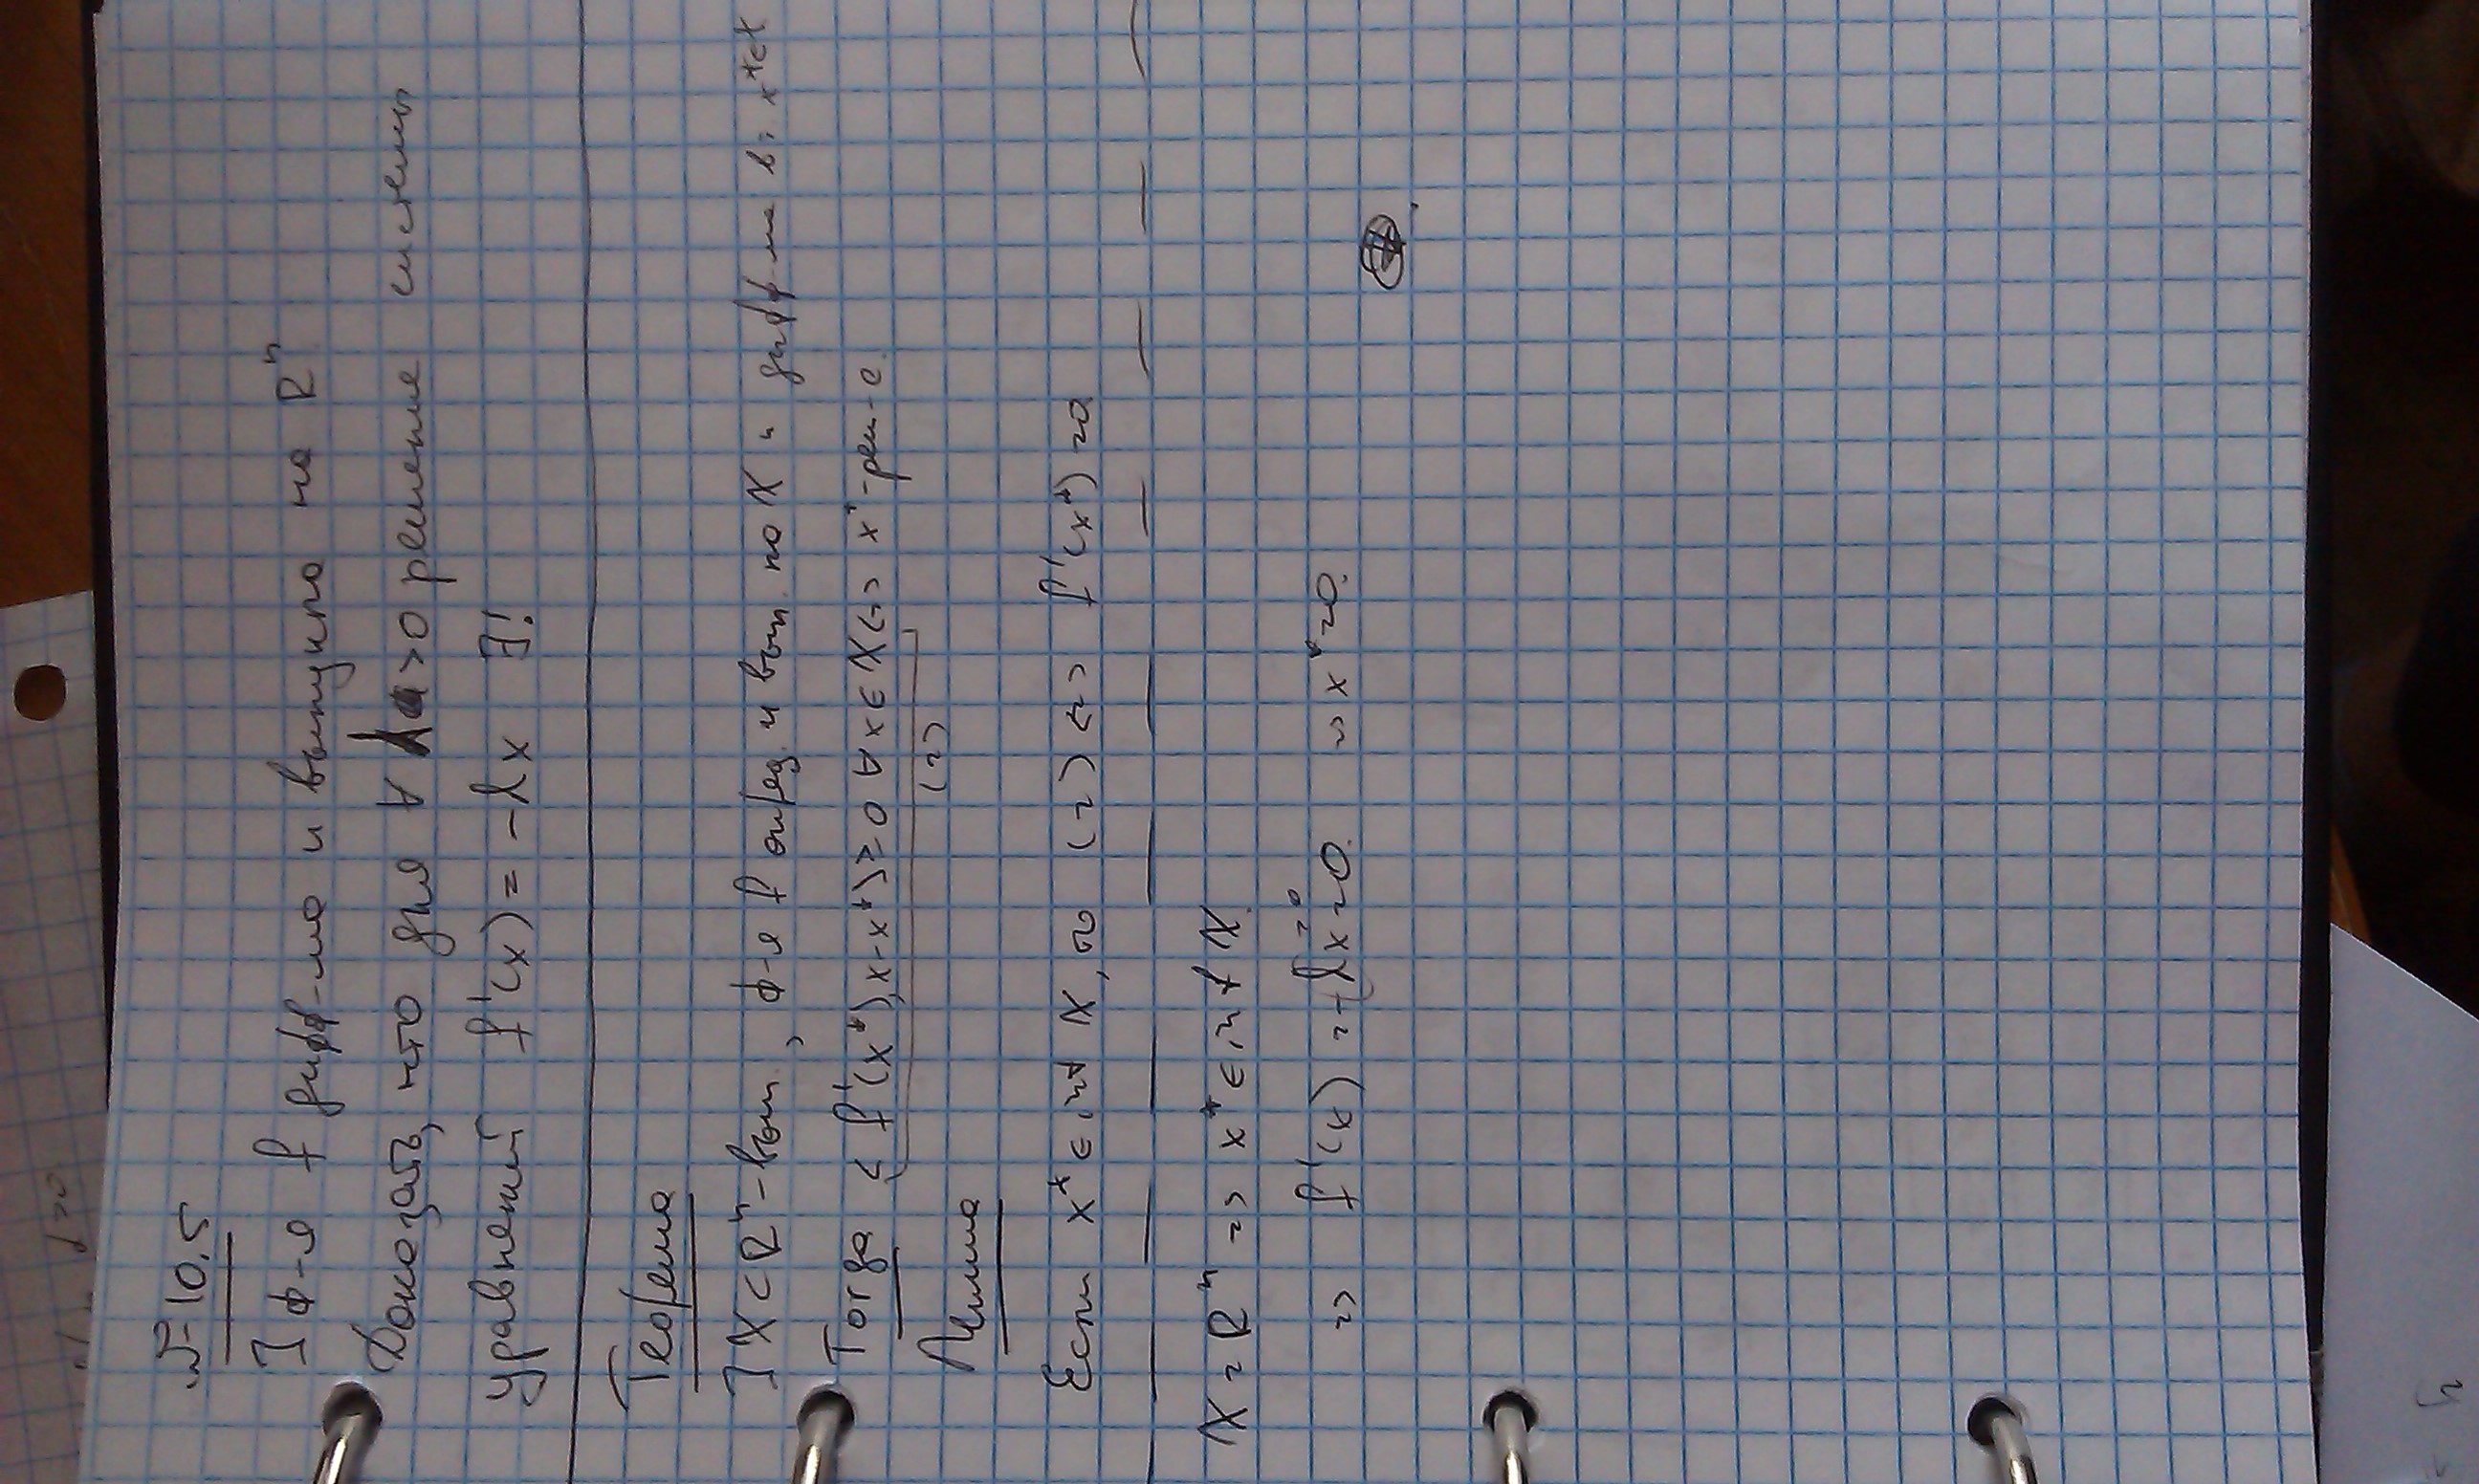 № 10.5
] ф-я f дифф-ма и выпукла на R^n
Доказать, что для ∀ λ > 0 решение системы
уравнений f'(x) = -λx ∃!
Теорема
] X ⊂ R^n - вып., ф-я f опред. и вып. на X и дифф-ма в т. x*∈X
Тогда < f'(x*), x-x*> ≥ 0 ∀ x ∈ X <=> x* - реш-е.
(2)
Лемма
Если x* ∈ int X, то (2) <=> f'(x*) = 0
X = R^n => x* ∈ int X.
=> f'(x) = -λx = 0. => x* = 0.